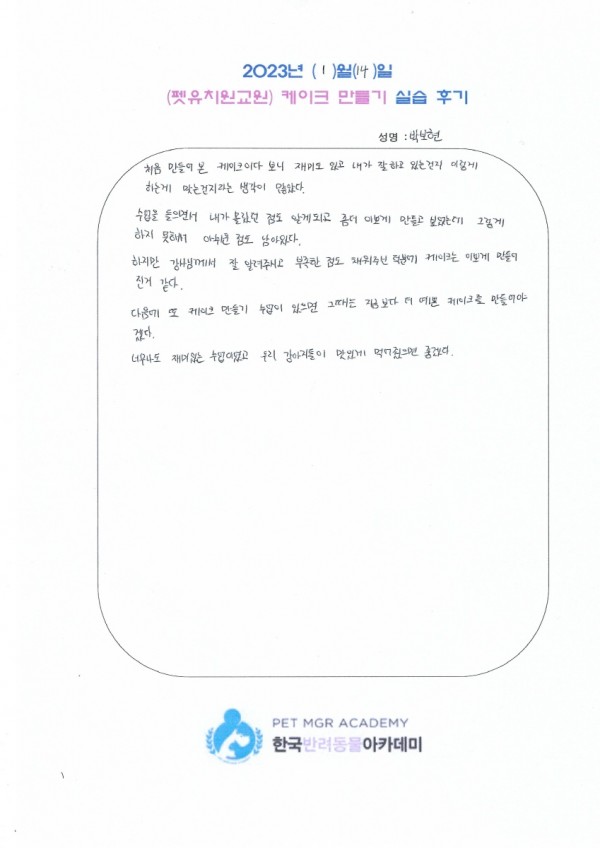 2023년 ( 1 )월(14 )일
(펫유치원교원) 케이크 만들기 실습 후기
성명 : 박보현
처음 만들어 본 케이크이다 보니 재미도 있고 내가 잘하고 있는건지 이렇게
하는게 맞는건지라는 생각이 많았다.
수업을 들으면서 내가 몰랐던 점도 알게되고 좀더 이쁘게 만들고 싶었는데 그렇게
하지 못해서 아쉬운 점도 남아있다.
하지만 강사님께서 잘 알려주시고 부족한 점도 채워주신 덕분에 케이크는 이쁘게 만들어
진거 같다.
다음에 또 케이크 만들기 수업이 있으면 그때는 지금보다 더 예쁜 케이크를 만들어야
겠다.
너무나도 재미있는 수업이였고 우리 강아지들이 맛있게 먹어줬으면 좋겠다.
PET MGR ACADEMY
한국반려동물아카데미